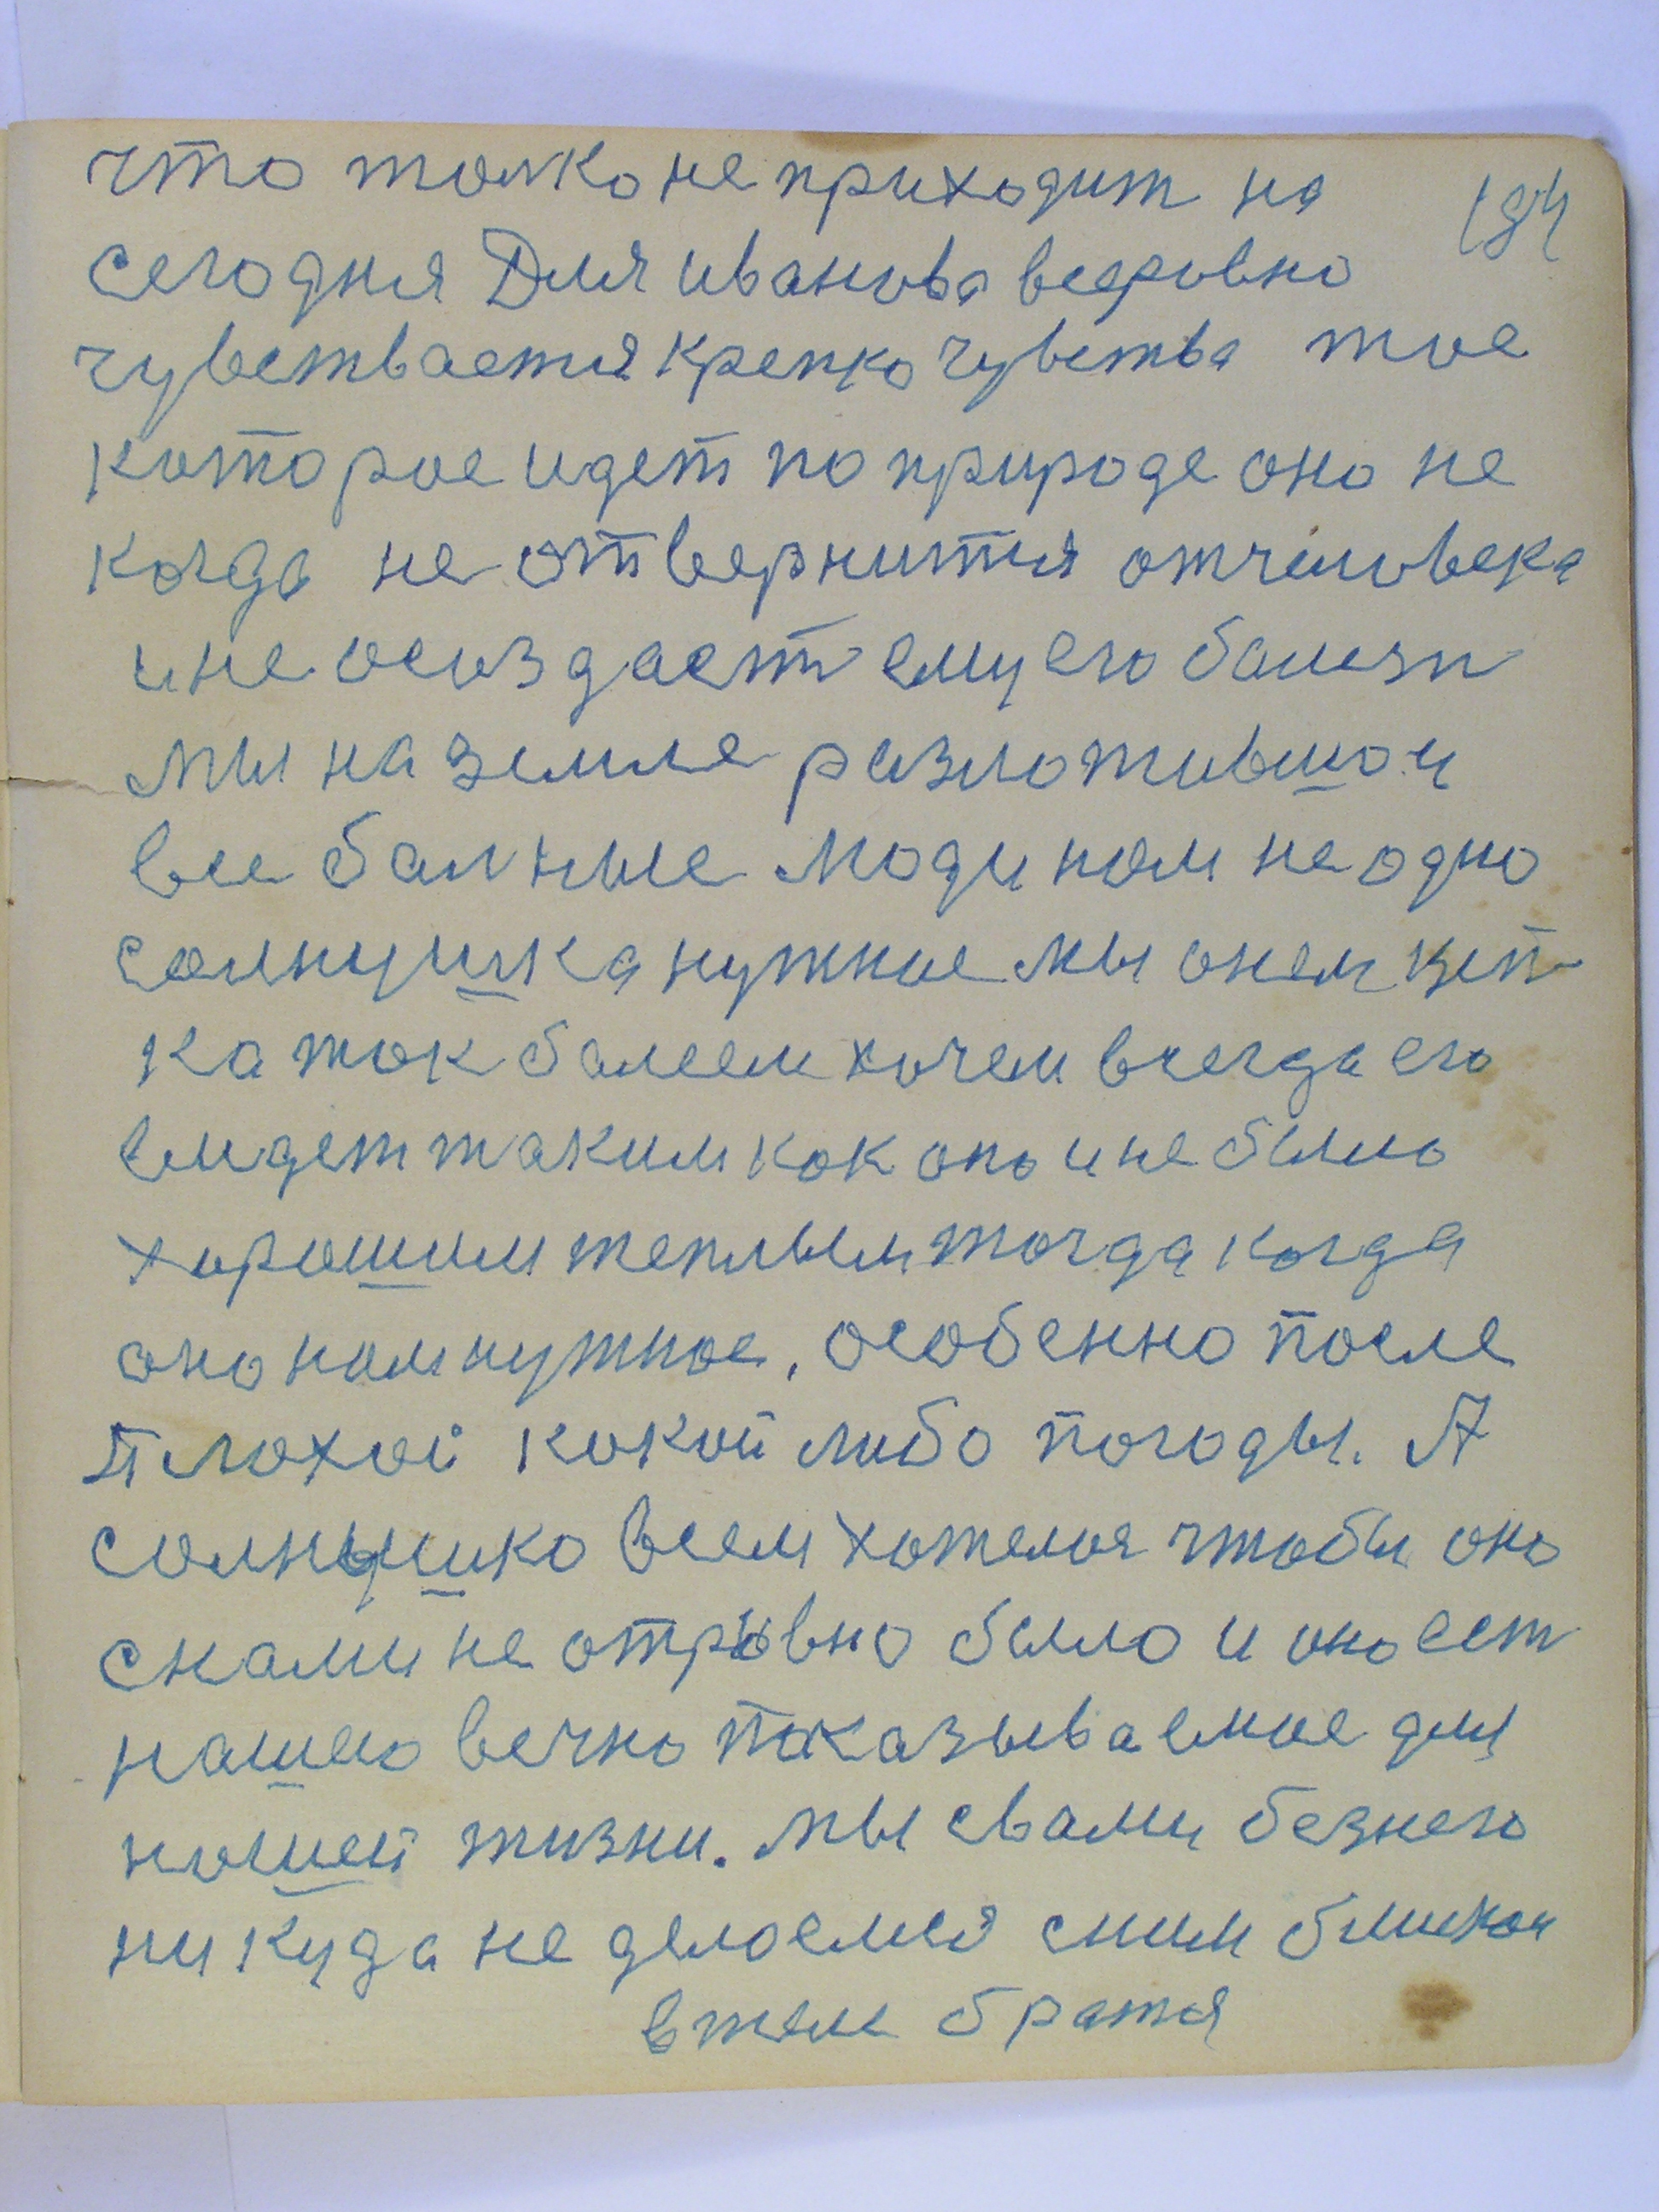 что толко не приходит на
184
сегодня Для иванова всеровно
чувствается крепко чувства тое
которое идет по природе оно не
когда не отвернится отчеловека
и не осоздает ему его болезн
мы на земле разложившои
все болные люди нам не одно
солнушка нужное мы онем
ка так болеем хочем всегда его
видет таким как оно и не было
хорошим теплым тогда когда
оно нам нужное, особенно после
плохой какой либо погоды. А
солнушко всем хотелоя чтобы оно
снами не отрывно было и оно ест
нашео вечно показываемое для
нашей жизни. мы свами безнего
ни куда не делаемся сним
втеле братя